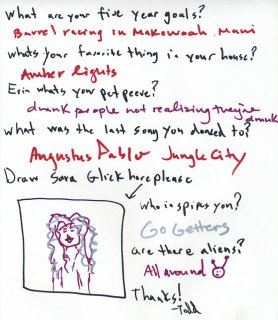 What are your five year goals?
Barrel racing in Makawoah, Maui
whats your favorite thing in your house?
Amber lights
Erin whats your pet peeve?
drunk people not realizing they're drunk
what was the last song you danced to?
Augustus Pablo Jungle City
Draw Sara Glick here please
Who inspires you?
Go Getters
are there aliens?
All around
Thanks!
-Todd